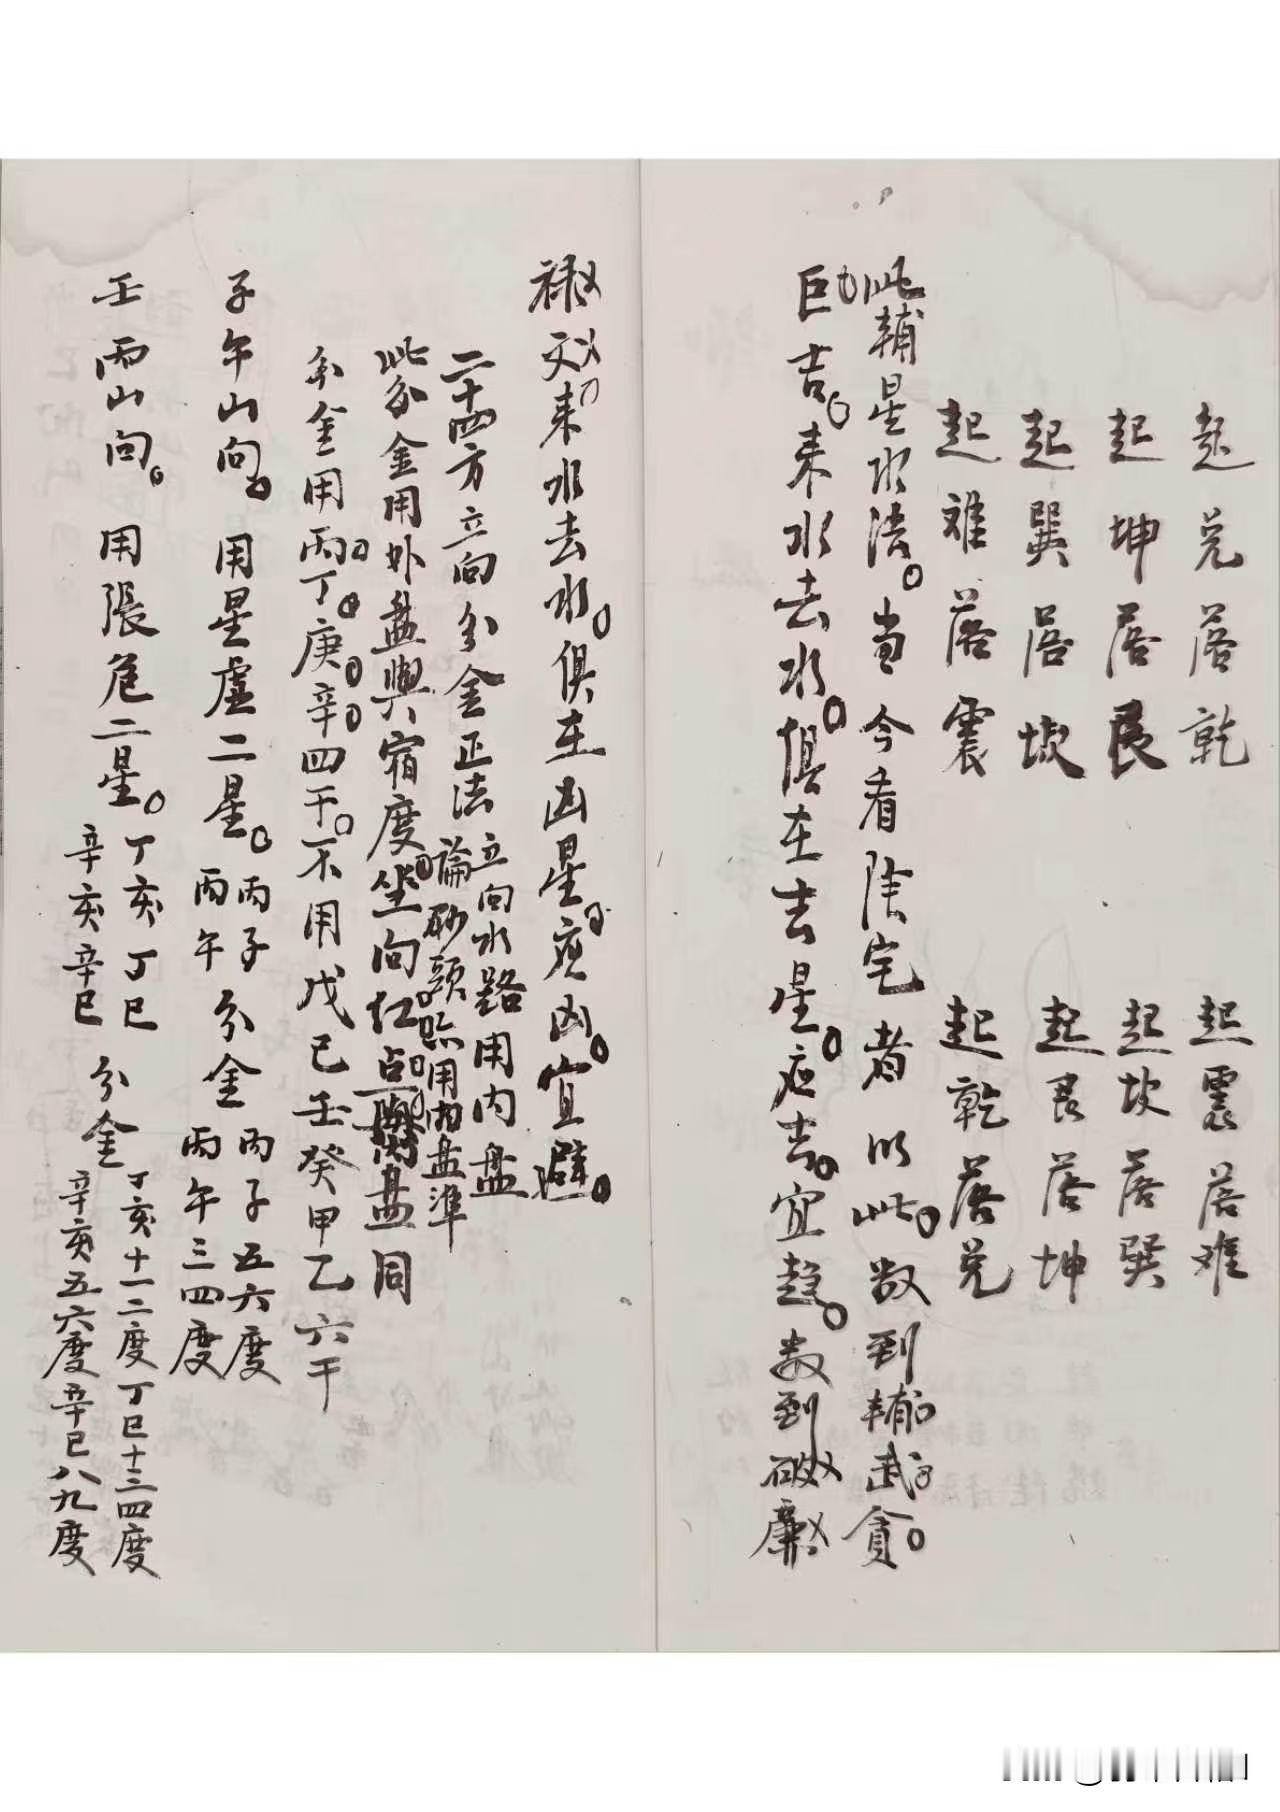 起兑落乾
起坤落艮
起巽落坎
起难落震
起震落难
起坎落巽
起艮落坤
起乾落兑
此輔星水法。当今看陰宅者以此。数到輔武貪。
巨吉。来水去水。俱在吉星。应吉。宜趋。数到破廉
禄文来水去水。俱在凶星。应凶。宜避。
二十四方立向分金正法
立向水路用内盘
論砂頭 用内盘準
此分金用外盘與宿度。坐向红点 盘同
分金用丙丁。庚辛四干。不用戊己壬癸甲乙六干
子午山向。用星虚二星。
丙子
丙午
分金
丙子五六度
丙午三四度
壬丙山向。用張危二星。
丁亥丁巳
辛亥辛巳
分金
丁亥十一二度丁巳十三四度
辛亥五六度辛巳八九度